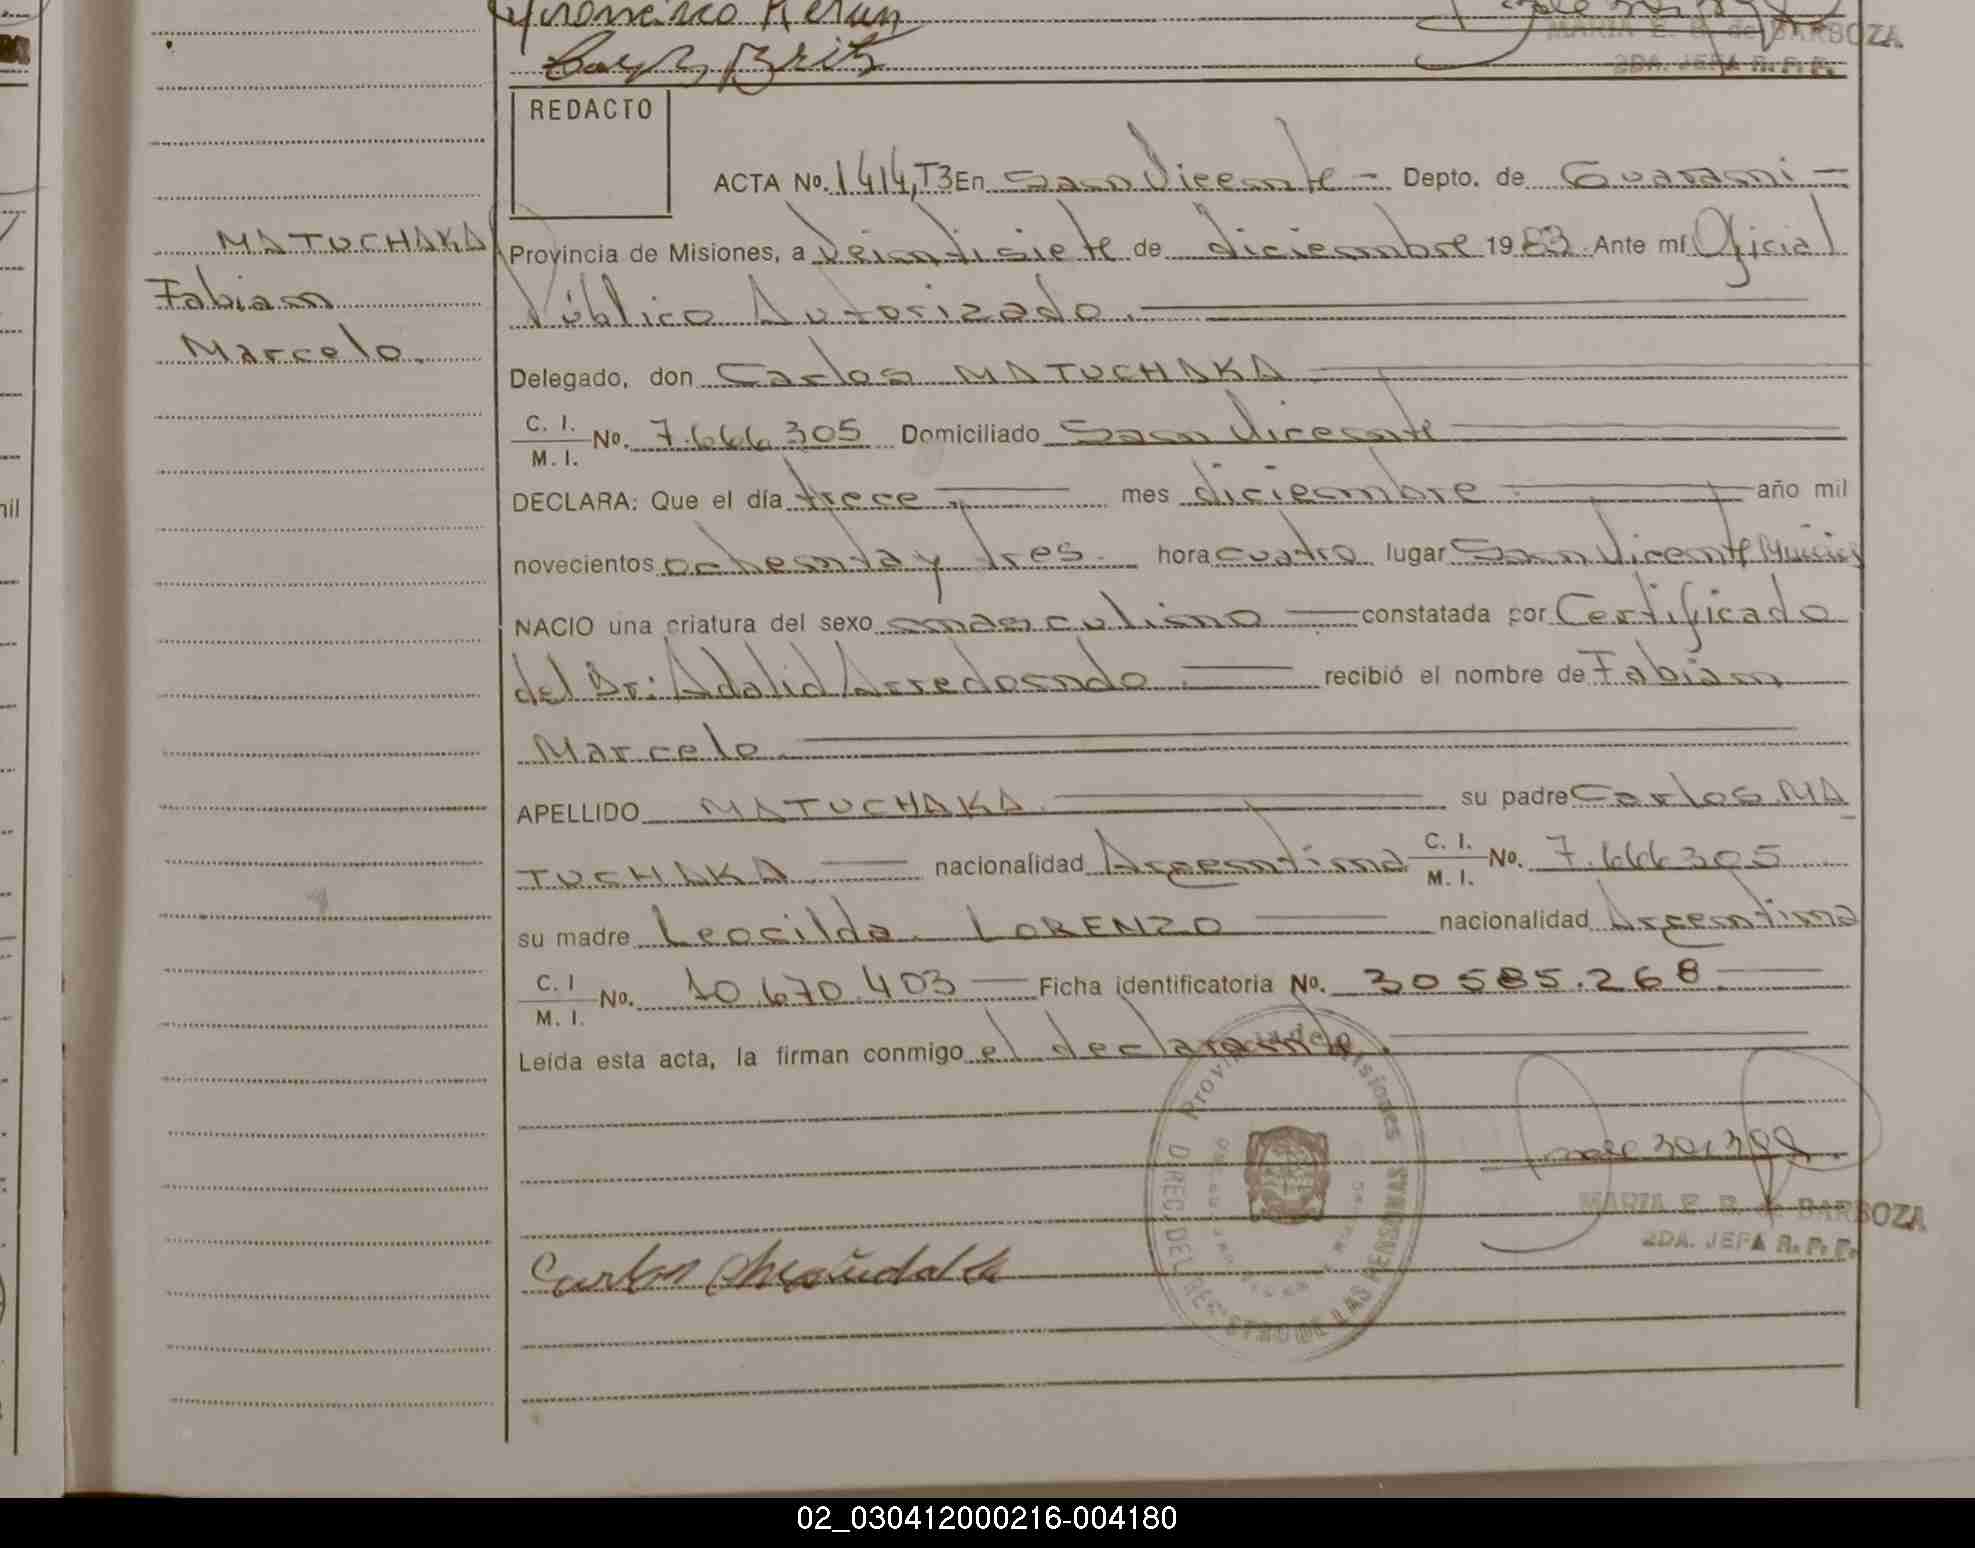 MARIA E. B. de BARBOZA
2DA. JEFA R. P. P.
REDACTO
ACTA No. 1414, T3 En San Vicente - Depto. de Guarani -
MATUCHAKA
Fabian
Marcelo.
Provincia de Misiones, a veintisiete de diciembre 1983. Ante mí Oficial
Público Autorizado.
Delegado, don Carlos MATUCHAKA
C. I.
M. I.
No. 7.666.305 Domiciliado San Vicente
DECLARA: Que el día trece mes diciembre año mil
novecientos ochenta y tres. hora cuatro lugar San Vicente
NACIO una criatura del sexo masculino constatada por Certificado
del Dr: Adalid Arredondo. recibió el nombre de Fabian
Marcelo
APELLIDO MATUCHAKA. su padre Carlos MA
TUCHAKA nacionalidad Argentina C. I.
M. I.
No. 7.666.305
su madre Leocilda LORENZO nacionalidad Argentina
C. I
M. I.
No. 10.670.403 Ficha identificatoria No. 30585.268
Leída esta acta, la firman conmigo el declarante.
Provincia de Misiones
DIREC. DEL REGISTRO DE LAS PERSONAS
MARIA E. B. de BARBOZA
2DA. JEFA R. P. P.
Carlos
02_030412000216-004180